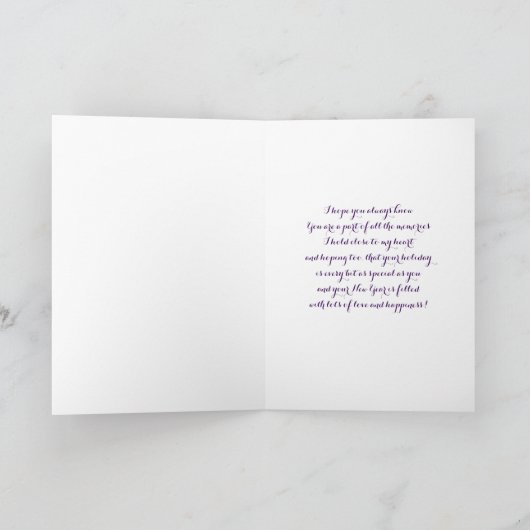 I hope you always know
You are a part of all the memories
I hold close to my heart
and hoping too, that your holiday
is every bit as special as you
and your New Year is filled
with lots of love and happiness!